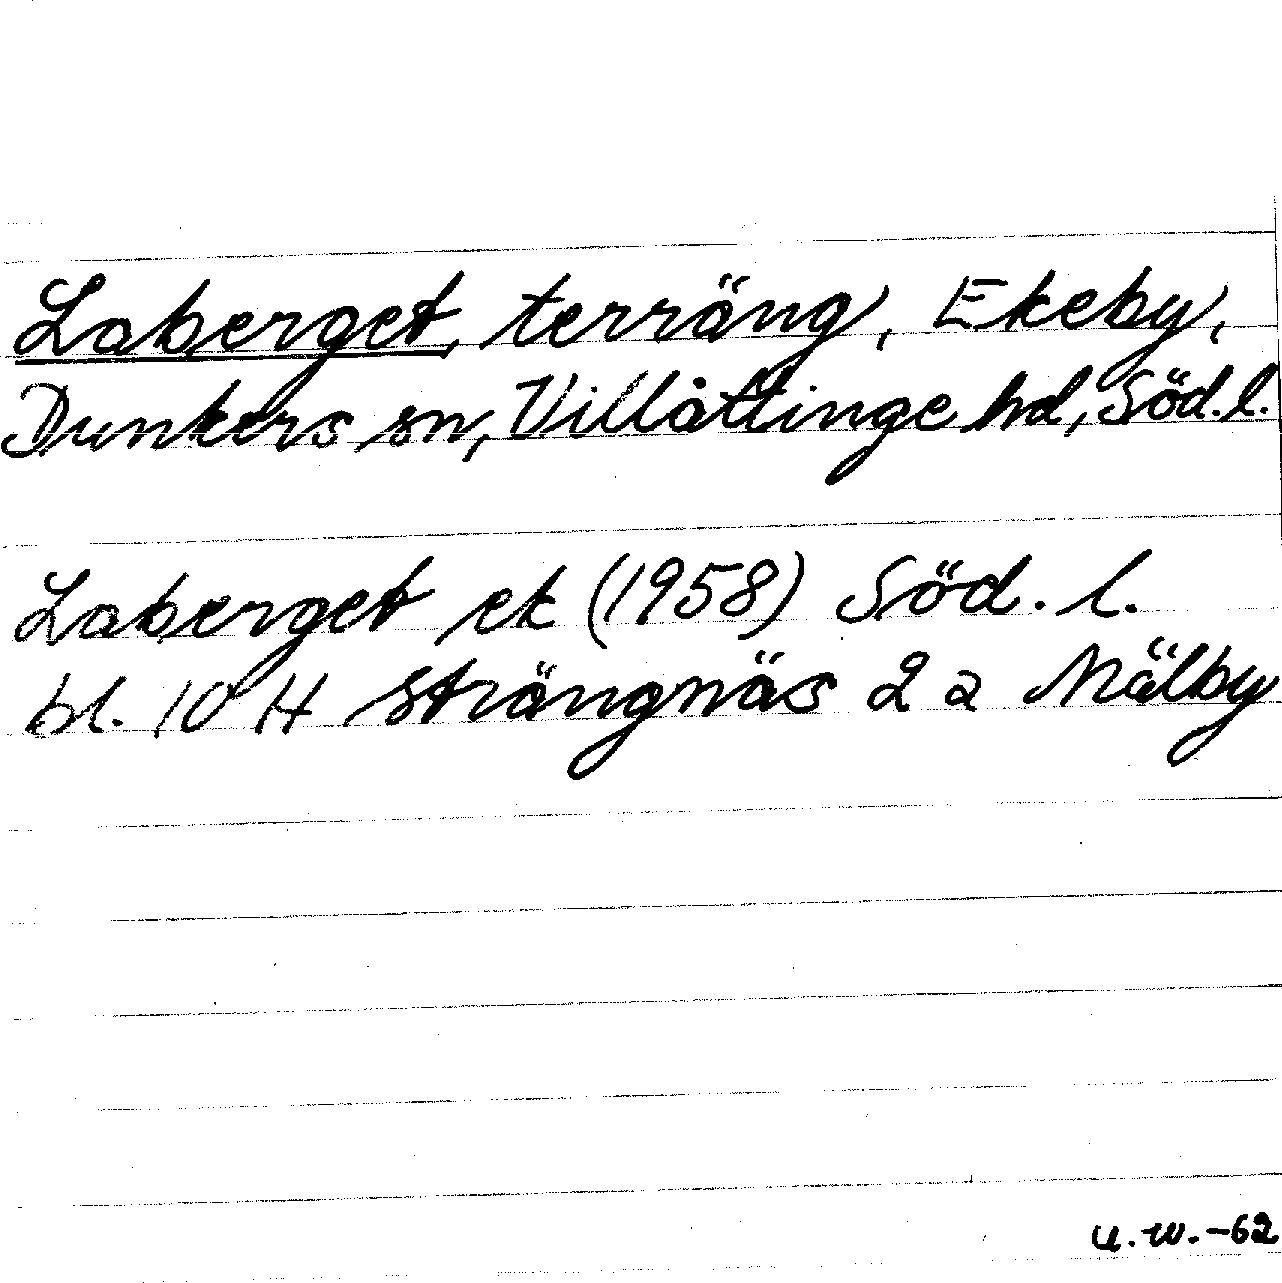 Laberget, terräng, Ekeby,
Dunkers sn, Villåttinge hd, Söd. l.
Laberget ek (1958) Söd. l.
bl. 10 H Strängnäs 2 a Mälby
u.w.-62